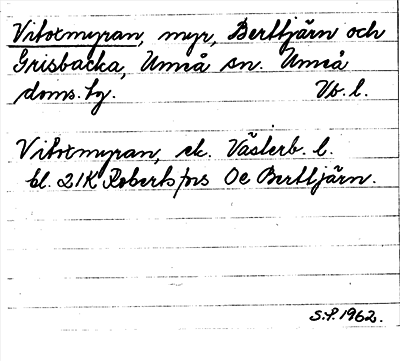 Vitoxmyran, myr, Berttjärn och
Grisbacka, Umeå sn. Umeå
doms. hg. Vb. l.
Vitoxmyran, ek. Västerb. l.
bl. 21K Robertsfors 0c Berttjärn.
S.P. 1962.